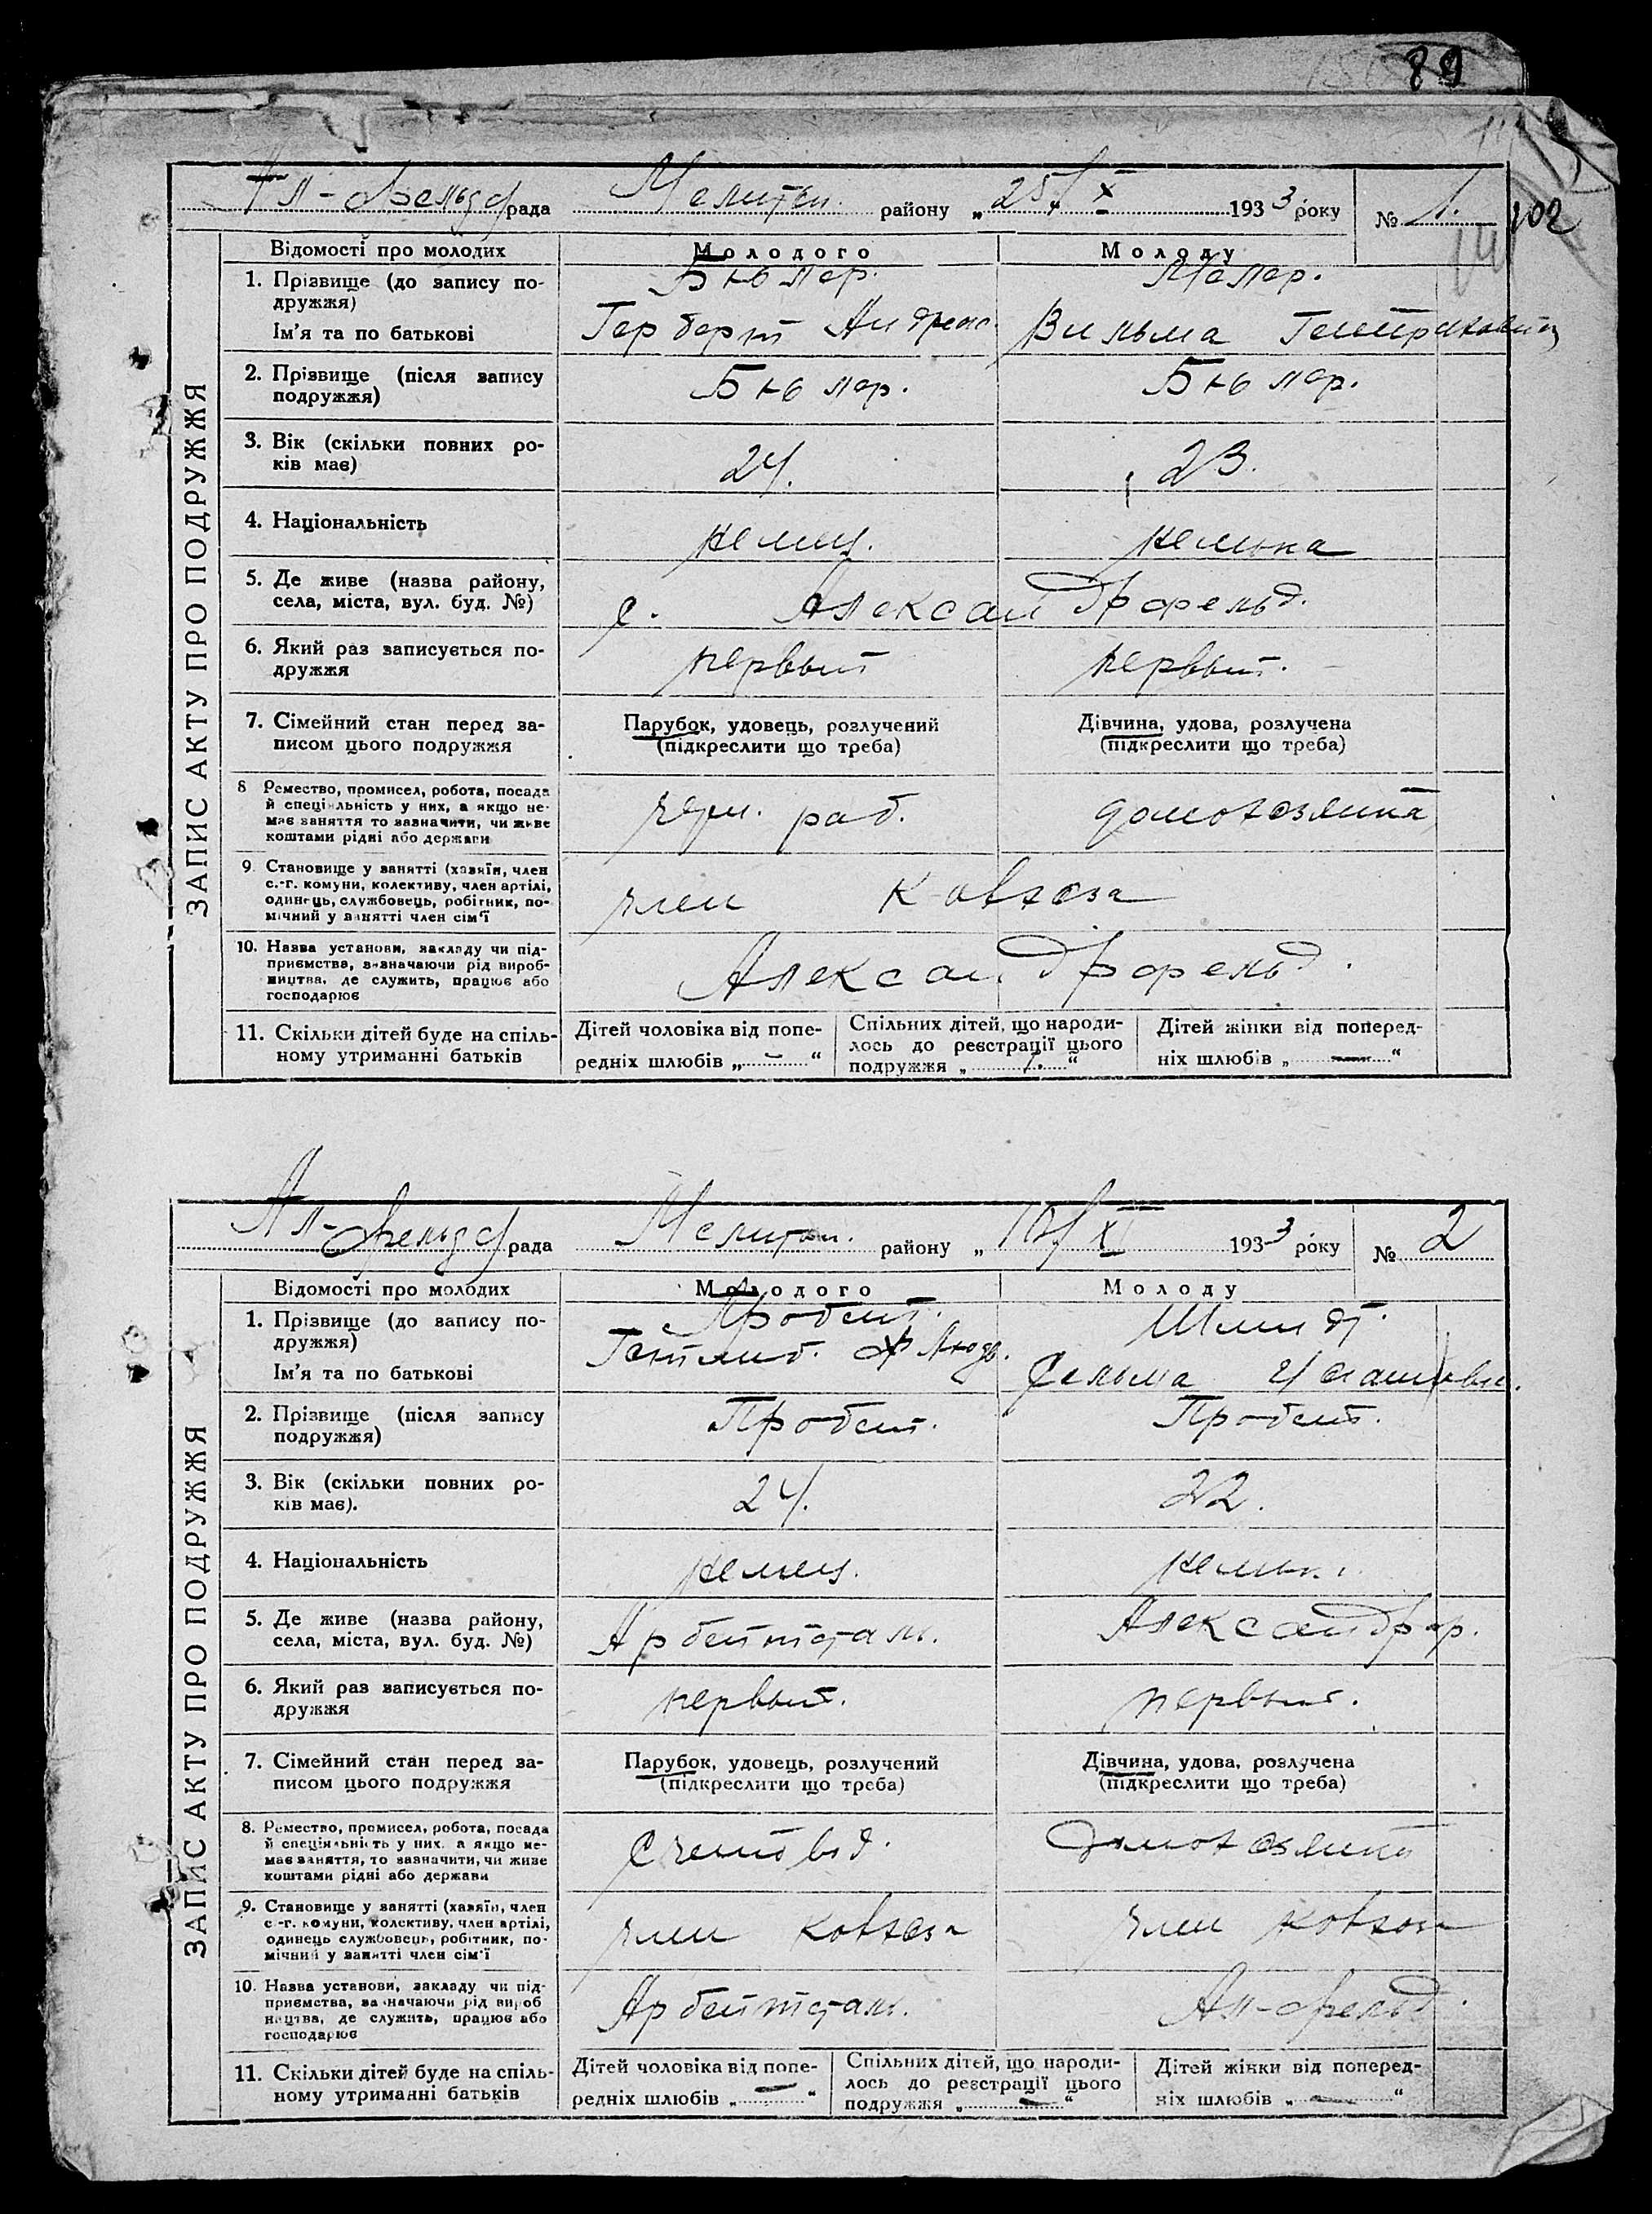 89
Ал-Фельдф рада Мелитоп. району „25/X 1933 року № 1.
102
ЗАПИС АКТУ ПРО ПОДРУЖЖЯ
Відомості про молодих Молодого Молоду
1. Прізвище (до запису по- Бюлер. Мелер.
дружжя)
Ім'я та по батькові Герберт Андреас. Вильма
2. Прізвище (після запису Бюлер. Бюлер.
подружжя)
3. Вік (скільки повних ро- 24. 23.
ків має)
4. Національність немец. немька
5. Де живе (назва району, с. Александрфельд.
села, міста, вул. буд. №)
6. Який раз записується по- первый первый.
дружжя
7. Сімейний стан перед за- Парубок, удовець, розлучений Дівчина, удова, розлучена
писом цього подружжя (підкреслити що треба) (підкреслити що треба)
8 Ремество, промисел, робота, посада
й спеціяльність у них, а якщо не- черн. раб. домохозяика
має заняття то зазначити, чи живе
коштами рідні або держави
9. Становище у занятті (хазяїн, член
с.-г. комуни, колективу, член артілі, член колхоза
одинець, службовець, робітник, по-
мічний у занятті член сім'ї
10. Назва установи, закладу чи під-
приємства, зазначаючи рід вироб- Александрфельд.
ництва, де служить, працює або
господарює
11. Скільки дітей буде на спіль- Дітей чоловіка від попе- Спільних дітей, що народи- Дітей жінки від поперед-
ному утриманні батьків редніх шлюбів „ — “ лось до реєстрації цього ніх шлюбів „ — “
подружжя „ 1. “
Ал-Фельдф рада Мелитоп. району „10/XI 1933 року № 2
ЗАПИС АКТУ ПРО ПОДРУЖЖЯ
Відомості про молодих Молодого Молоду
1. Прізвище (до запису по- Пробст. Шмидт.
дружжя) Готлиб. Людв.
Ім'я та по батькові Сельма
2. Прізвище (після запису Пробст. Пробст.
подружжя)
3. Вік (скільки повних ро- 24. 22.
ків має).
4. Національність немец. немьк.
5. Де живе (назва району, Арбейтсталь. Александрф.
села, міста, вул. буд. №)
6. Який раз записується по- первый. первый.
дружжя
7. Сімейний стан перед за- Парубок, удовець, розлучений Дівчина, удова, розлучена
писом цього подружжя (підкреслити що треба) (підкреслити що треба)
8. Ремество, промисел, робота, посада
й спеціяльність у них, а якщо не- счетовод. домохозяика
має заняття, то зазначити, чи живе
коштами рідні або держави
9. Становище у занятті (хазяїн, член
с.-г. комуни, колективу, член артілі, член колхоза член колхоза
одинець службовець, робітник, по-
мічний у занятті член сім'ї
10. Назва установи, закладу чи під-
приємства, зазначаючи рід вироб Арбейтсталь. Ал-фельд.
ництва, де служить, працює або
господарює
11. Скільки дітей буде на спіль- Дітей чоловіка від попе- Спільних дітей, що народи- Дітей жінки від поперед-
ному утриманні батьків редніх шлюбів „ — “ лось до реєстрації цього ніх шлюбів „ — “
подружжя „ — “